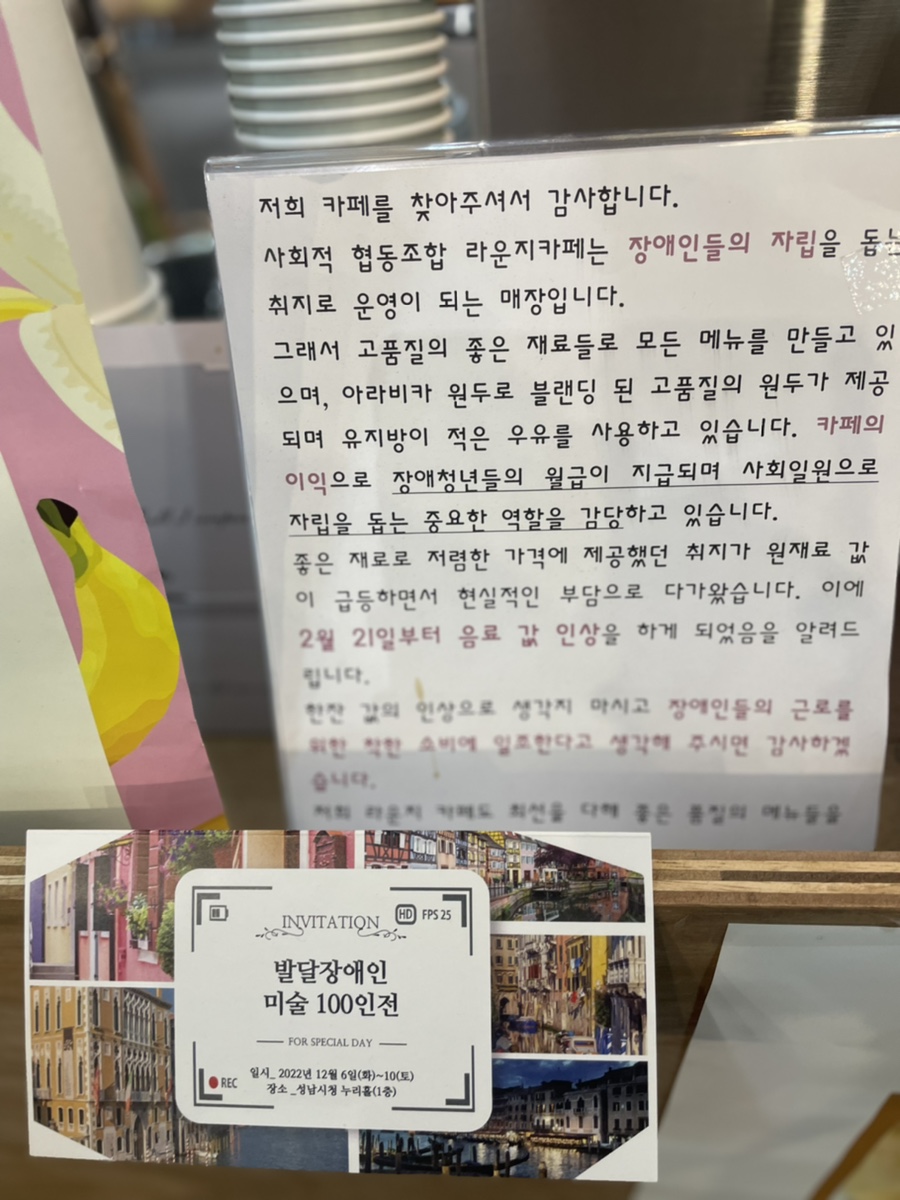 저희 카페를 찾아주셔서 감사합니다.
사회적 협동조합 라운지카페는 장애인들의 자립을 돕는
취지로 운영이 되는 매장입니다.
그래서 고품질의 좋은 재료들로 모든 메뉴를 만들고 있
으며, 아라비카 원두로 블랜딩 된 고품질의 원두가 제공
되며 유지방이 적은 우유를 사용하고 있습니다. 카페의
이익으로 장애청년들의 월급이 지급되며 사회일원으로
자립을 돕는 중요한 역할을 감당하고 있습니다.
좋은 재로로 저렴한 가격에 제공했던 취지가 원재료 값
이 급등하면서 현실적인 부담으로 다가왔습니다. 이에
2월 21일부터 음료 값 인상을 하게 되었음을 알려드
립니다.
한잔 값의 인상으로 생각지 마시고 장애인들의 근로를
위한 착한 소비에 일조한다고 생각해 주시면 감사하겠
습니다.
저희 라운지 카페도 최선을 다해 좋은 품질의 메뉴들을
INVITATION
HD FPS 25
발달장애인
미술 100인전
FOR SPECIAL DAY
REC
일시_ 2022년 12월 6일(화)~10(토)
장소 _성남시청 누리홀(1층)